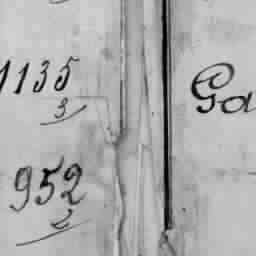 1135
3
Ga
952
2